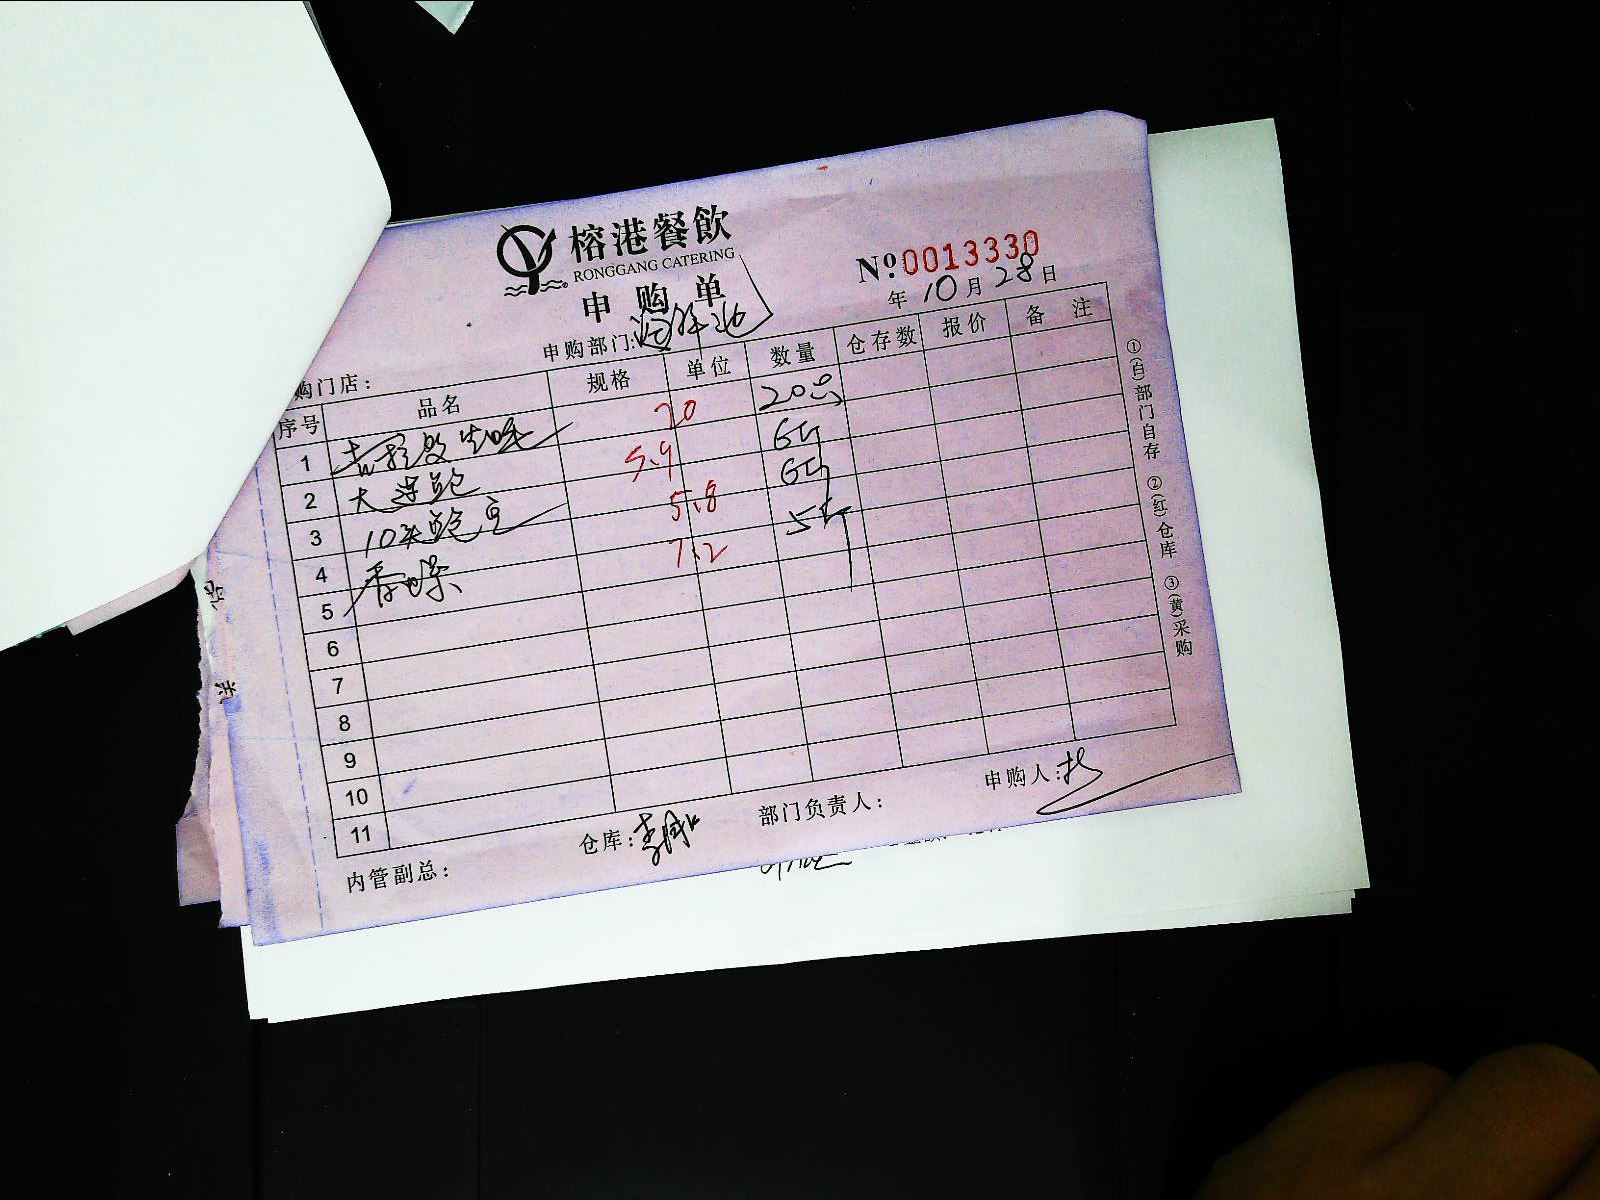 榕港餐飲
RONGGANG CATERING
申购单
№ 0013330
年 10 月 28 日
申购部门: 海鲜池
购门店:
序号 品名 规格 单位 数量 仓存数 报价 备注
1 20 20只
2 大连鲍 5.9 6斤
3 10头鲍 5.8 6斤
4 香螺 7.2 5斤
5
6
7
8
9
10
11
内管副总: 仓库: 部门负责人: 申购人:
①(白)部门自存 ②(红)仓库 ③(黄)采购